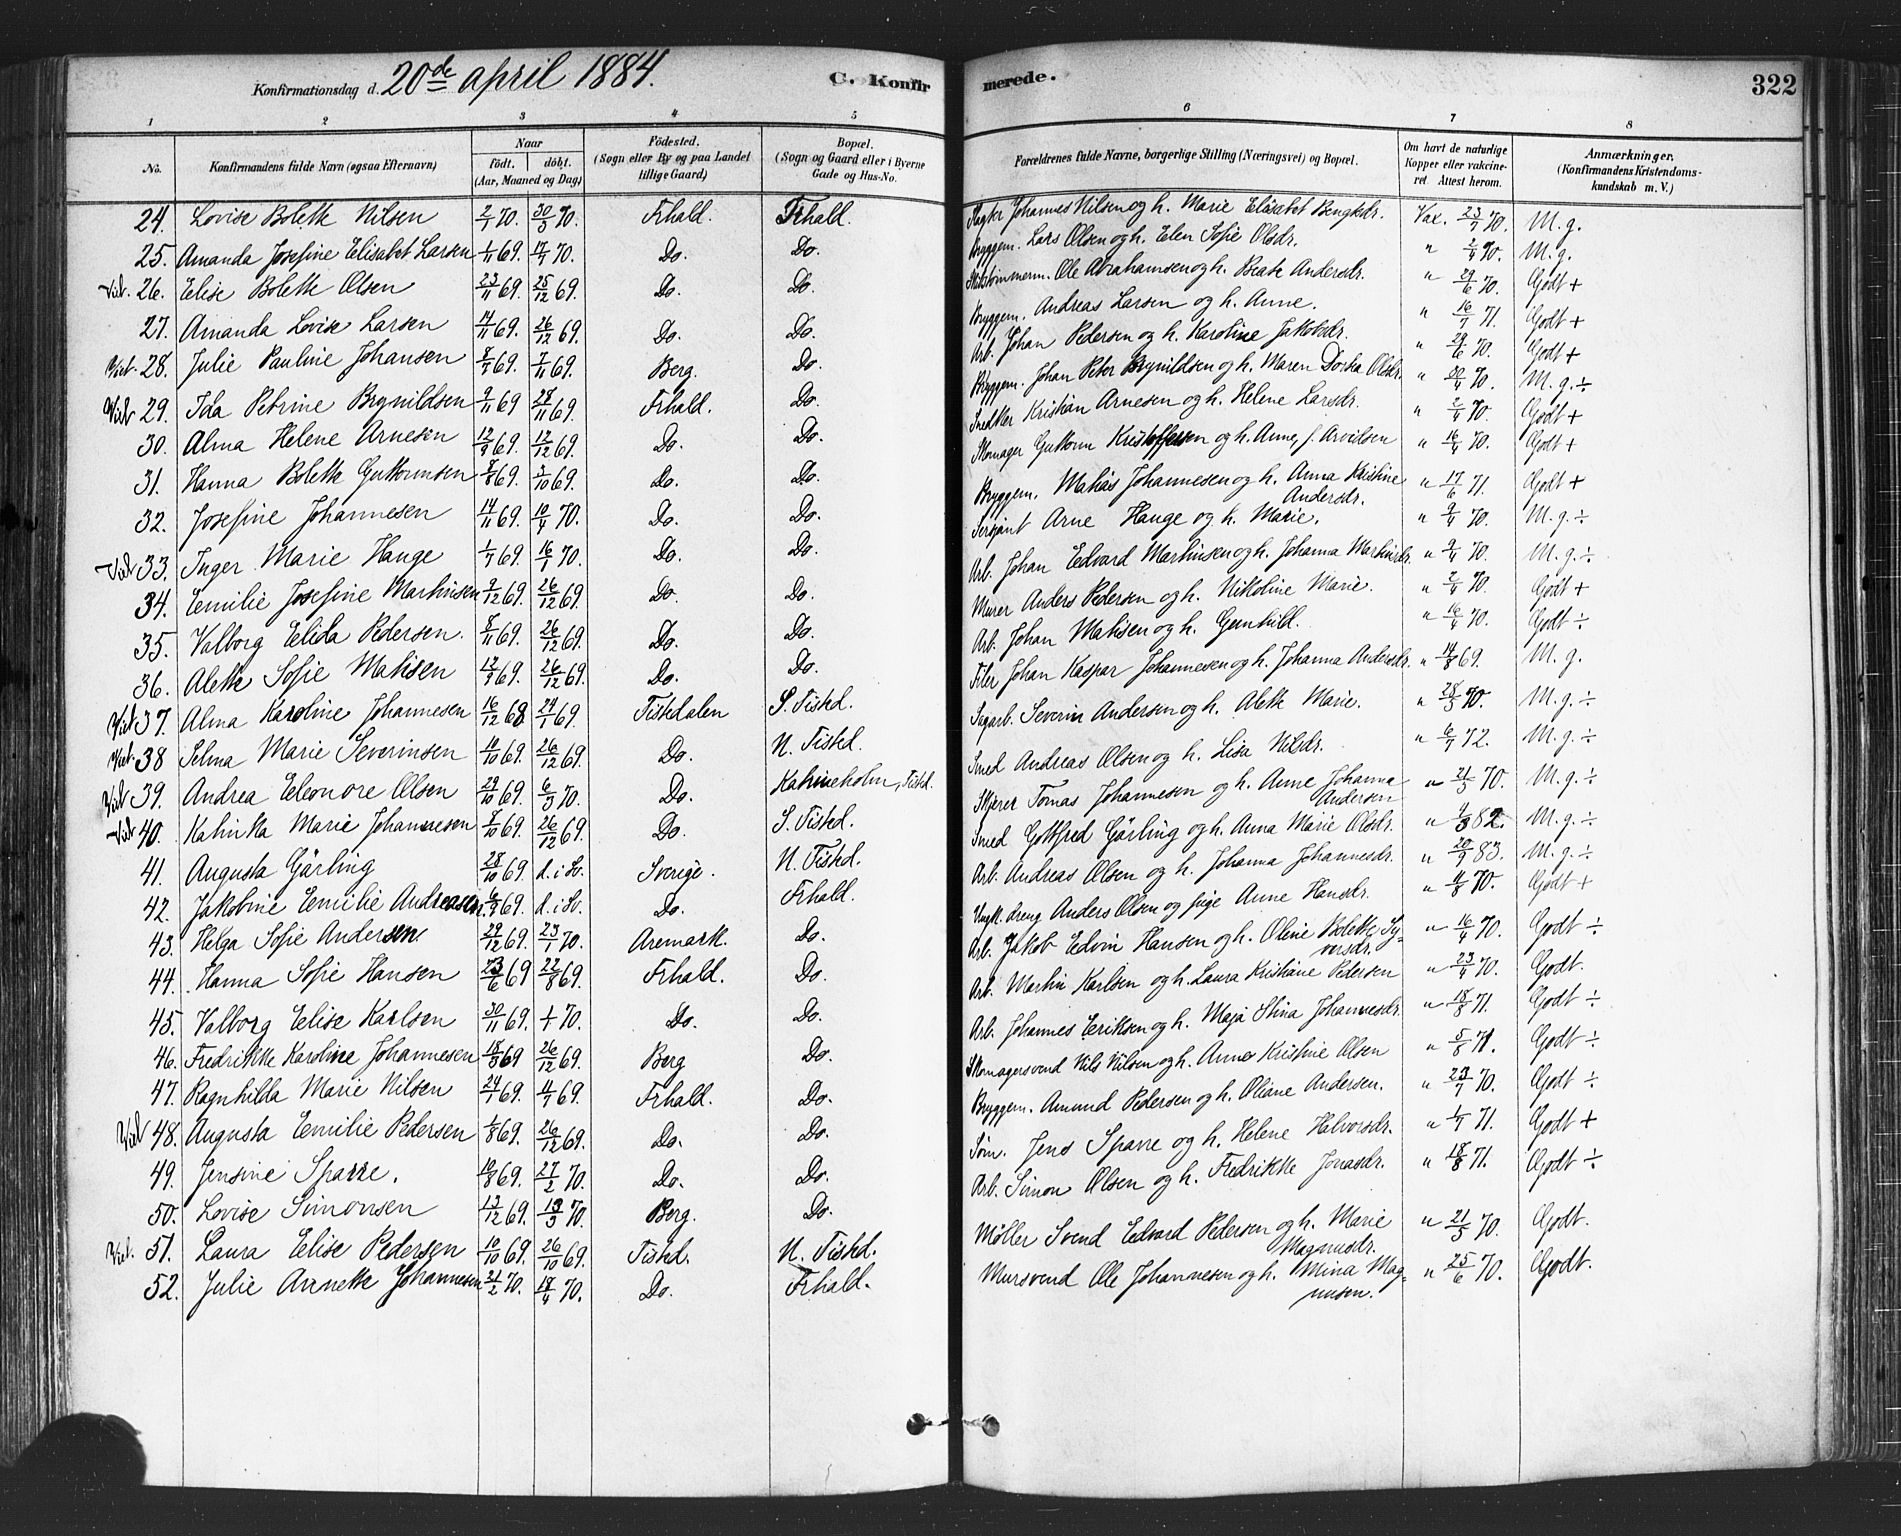 Konfirmationsdag d. 20de april 1884.
C. Konfirmerede.
322
1 2 3 4 5 6 7 8
No. Konfirmandens fulde Navn (ogsaa Efternavn) Naar födt. döbt. (Aar, Maaned og Dag) Födested. (Sogn eller By og paa Landet tillige Gaard) Bopæl. (Sogn og Gaard eller i Byerne Gade og Hus-No. Forældrenes fulde Navne, borgerlige Stilling (Næringsvei) og Bopæl. Om havt de naturlige Kopper eller vakcineret. Attest herom. Anmærkninger. (Konfirmandens Kristendomskundskab m. V.)
24. Lovise Bolette Nilsen 2/1 70. 30/3 70. Frhald. Frhald. Slagter Johannes Nilsen og h. Marie Elisabet Bengtsdr. Vax. 23/7 70. M. g.
25. Amanda Josefine Elisabet Larsen 1/11 69. 17/4 70. Do. Do. Bryggem. Lars Olsen og h. Elen Sofie Olsdr. " 2/4 70. M. g.
26. Elise Bolette Olsen 23/11 69. 25/12 69. Do. Do. Skibstømmerm. Ole Abrahamsen og h. Beate Andersdr. " 29/6 70. Godt +
27. Amanda Lovise Larsen 14/11 69. 26/12 69. Do. Do. Bryggem. Andreas Larsen og h. Anne. " 16/7 71. Godt +
28. Julie Pauline Johansen 8/7 69. 7/11 69. Berg. Do. Arb. Johan Pedersen og h. Karoline Jakobsdr. " 29/6 70. Godt +
29. Ida Petrine Brynildsen 9/11 69 28/11 69. Frhald. Do. Bryggem. Johan Peter Brynildsen og h. Maren Dortea Olsdr. " 20/4 70. M. g. ÷
30. Alma Helene Arnesen 12/9 69. 12/12 69. Do. Do. Snedker Kristian Arnesen og h. Helene Larsdr. " 2/4 70. Godt +
31. Hanna Bolette Guttormsen 8/8 69. 3/10 69. Do. Do. Skomager Guttorm Kristoffersen og h. Anne f. Arvidsen " 16/4 70. Godt +
32. Josefine Johannesen 14/11 69. 10/4 70. Do. Do. Bryggem. Matias Johannesen og h. Anna Kristine Andersdr. " 17/6 71. Godt +
33. Inger Marie Hauge 1/7 69. 16/1 70. Do. Do. Sersjant Arne Hauge og h. Marie. " 9/4 70. M. g. ÷
34. Emilie Josefine Martinsen 9/12 69. 26/12 69. Do. Do. Arb. Johan Edvard Martinsen og h. Johanna Martinsdr. " 9/4 70. M. g. ÷
35. Valborg Elida Pedersen. 8/11 69. 26/12 69. Do. Do. Murer Anders Pedersen og h. Nikoline Marie. " 2/4 70. Godt +
36. Alette Sofie Matisen 12/9 69. 26/12 69. Do. Do. Arb. Johan Matisen og h. Gunhild. " 16/4 70. Godt ÷
37. Alma Karoline Johannesen 16/12 68 24/1 69. Tistedalen S. Tistd. Filer Johan Kaspar Johannesen og h. Johanna Andersdr. " 14/8 69. M. g.
38 Selma Marie Severinsen 10/10 69. 26/12 69. Do. N. Tistd. Sagarb. Severin Andersen og h. Alette Marie. " 28/5 70. M. g. ÷
39. Andrea Eleonore Olsen 29/10 69. 6/3 70. Do. Katrineholm, Tistd. Smed Andreas Olsen og h. Lisa Nilsdr. " 6/7 72. M. g. ÷
40. Katinka Marie Johannesen 8/10 69. 26/12 69. Do. S. Tistd. Skjærer Tomas Johannesen og h. Anne Johanna Andersen " 21/5 70. M. g. ÷
41. Augusta Gärling 28/10 69. d. i Sv. Sverige. N. Tistd. Smed Gottfred Gärling og h. Anna Marie Olsdr. " 4/3 82. M. g. ÷
42. Jakobine Emilie Andreasen 6/9 69. d. i Sv. Do. Frhald. Arb. Andreas Olsen og h. Johanna Johannesdr. " 20/9 83. M. g. ÷
43. Helga Sofie Andersen. 29/12 69. 23/1 70. Aremark. Do. Ungk. dreng Anders Olsen og pige Anne Hansdr. " 11/8 70. Godt +
44. Hanna Sofie Hansen 23/6 69 22/8 69. Frhald. Do. Arb. Jakob Edvin Hansen og h. Oline Bolette Syversdr. " 16/4 70. Godt ÷
45. Valborg Elise Karlsen 30/11 69. 70. Do. Do. Arb. Martin Karlsen og h. Laura Kristiane Pedersen " 23/4 70. Godt.
46. Fredrikke Karoline Johannesen 18/3 69 26/12 69. Berg Do. Arb. Johannes Eriksen og h. Maja Stina Johannesdr. " 18/8 71. Godt ÷
47. Ragnhilda Marie Nilsen 24/1 69. 4/7 69. Frhald. Do. Skomagersvend Nils Nilsen og h. Anne Kristine Olsen " 5/8 71. Godt ÷
48. Augusta Emilie Pedersen 1/8 69. 26/12 69. Do. Do. Bryggem. Amund Pedersen og h. Oliane Andersen. " 23/7 70. Godt ÷
49. Jensine Sparre. 10/8 69. 27/2 70. Do. Do. Tøm. Jens Sparre og h. Helene Halvorsdr. " 1/7 71. Godt +
50. Lovise Simonsen 13/12 69. 13/3 70. Berg. Do. Arb. Simon Olsen og h. Fredrikke Jonasdr. " 18/8 71. Godt ÷
51. Laura Elise Pedersen 10/10 69. 26/10 69. Tistd. N. Tistd. Møller Svend Edvard Pedersen og h. Marie Magnusdr. " 21/5 70. Godt.
52. Julie Annette Johannesen 21/2 70. 18/4 70. Do. Frhald. Mursvend Ole Johannesen og h. Mina Magnusen. " 25/6 70. Godt.